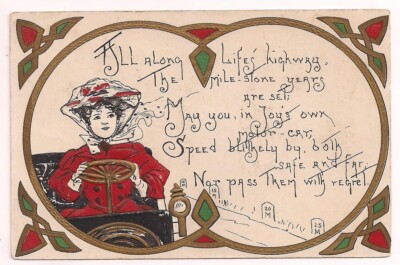 All along Life's highway,
The mile-stone years
are set;
May you, in Joy's own
motor-car,
Speed blithely by, both
safe and far,
Nor pass them with regret.
20
M
25
M